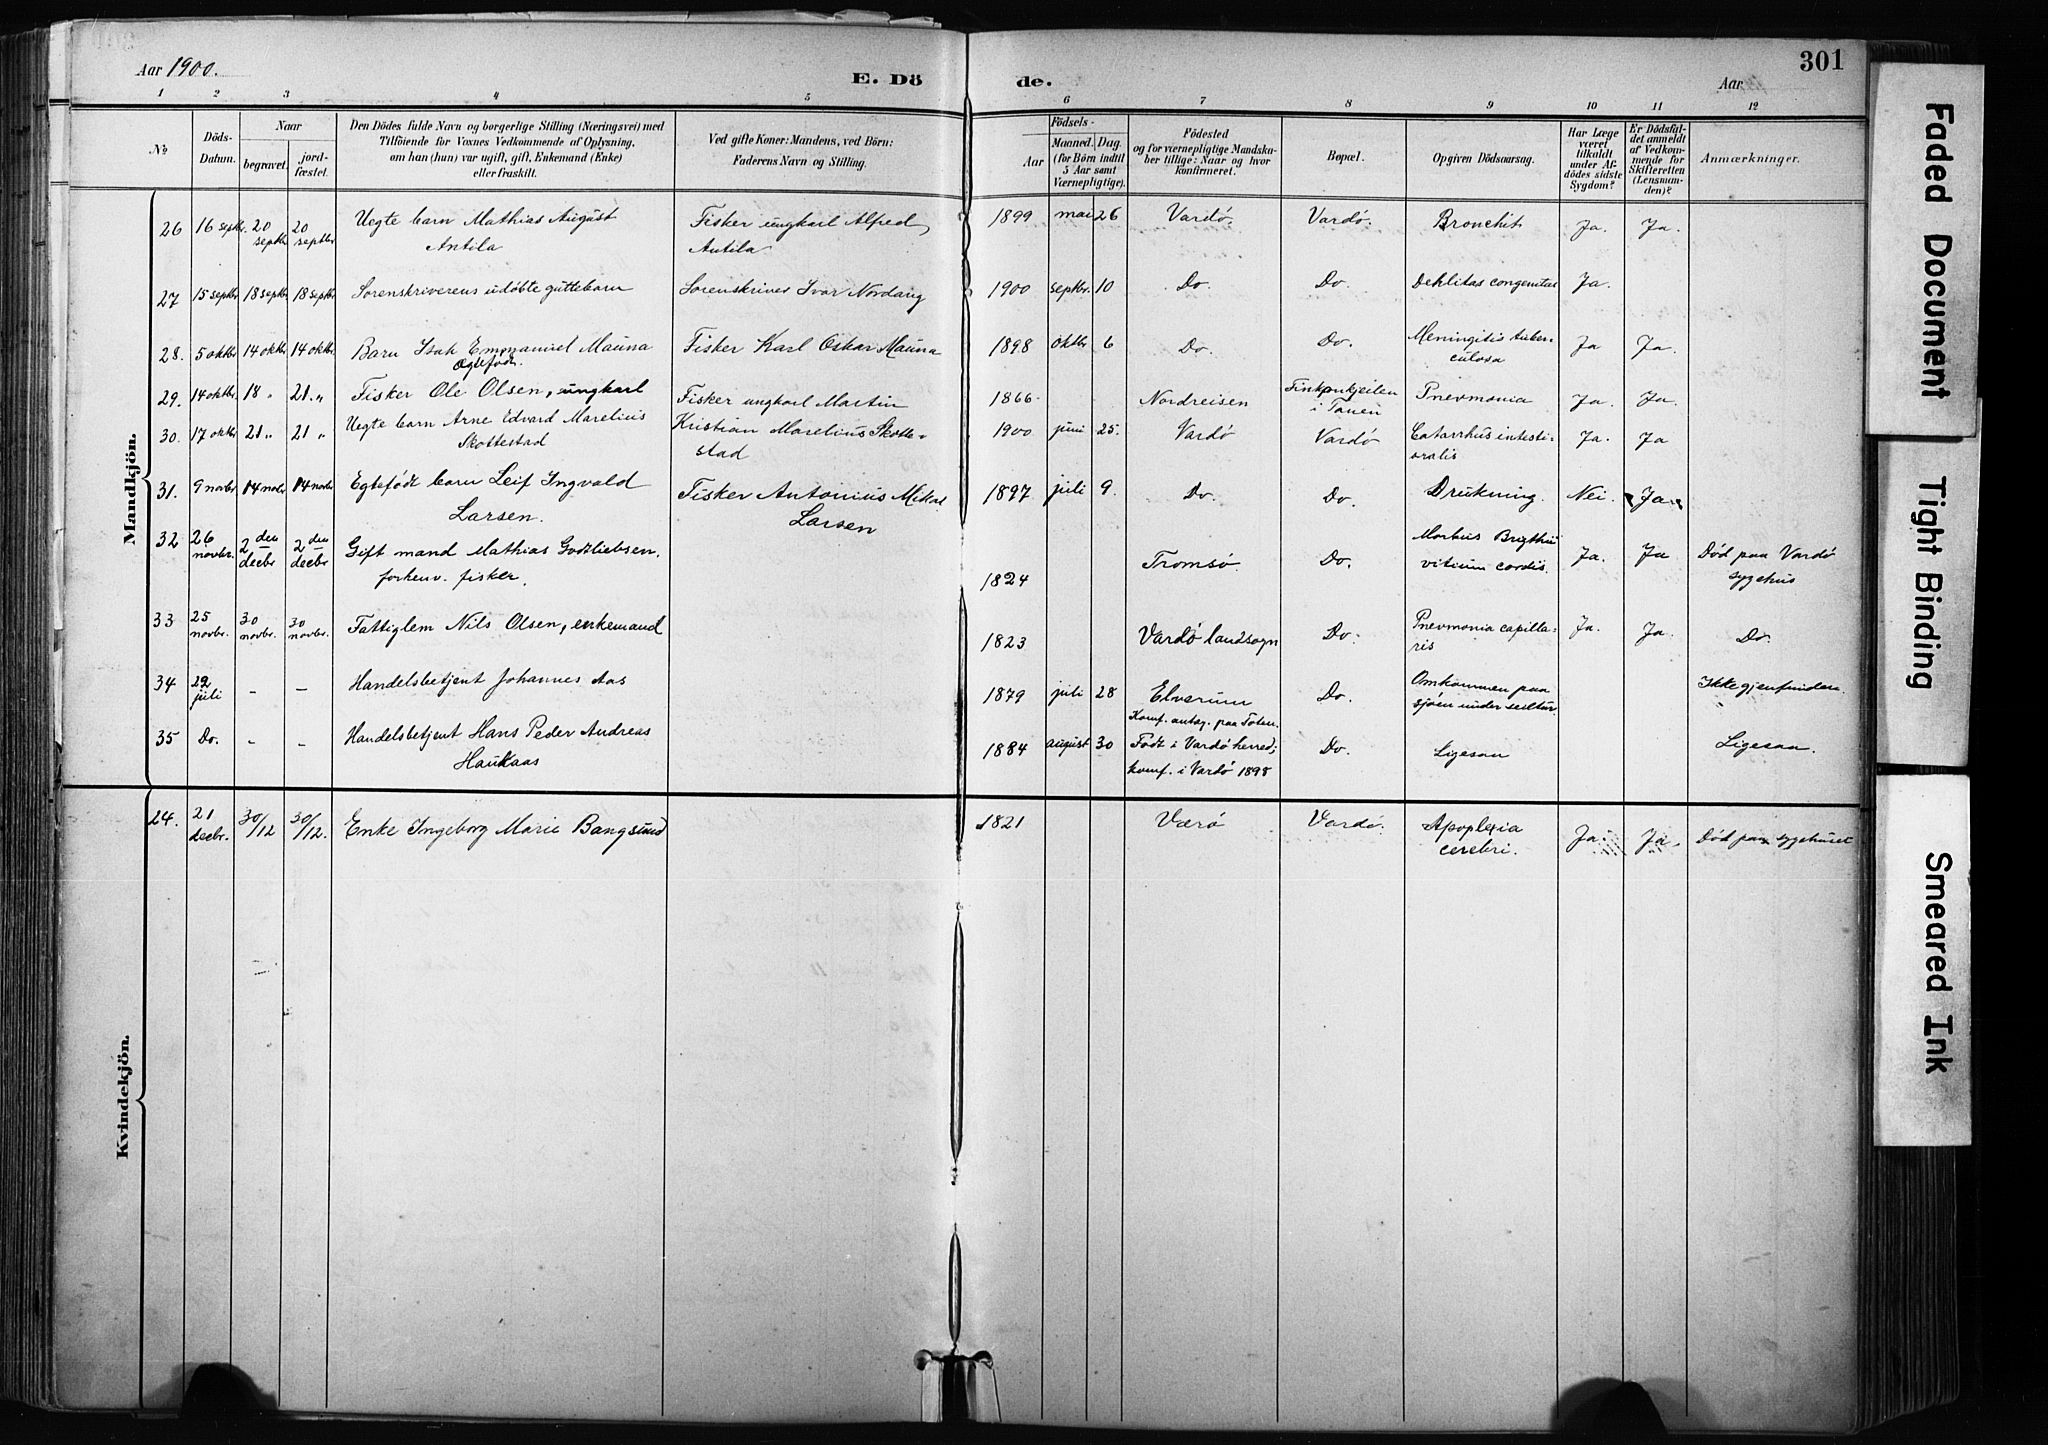 Aar 1900.
E. Dö
de.
Aar
301
1 2 3 4 5 6 7 8 9 10 11 12
No
Döds-Datum.
Naar
begravet.
jord-fæstet.
Den Dödes fulde Navn og borgerlige Stilling (Næringsvei) med
Tilföiende for Voxnes Vedkommende af Oplysning,
om han (hun) var ugift, gift, Enkemand (Enke)
eller fraskilt.
Ved gifte Koner: Mandens, ved Börn:
Faderens Navn og Stilling.
Födsels-
Aar
Maaned. (for Börn indtil 5 Aar samt Værnepligtige).
Dag.
Födested
og for værnepligtige Mandska-
ber tillige: Naar og hvor
konfirmeret.
Bopæl.
Opgiven Dödsaarsag.
Har Læge været tilkaldt under Af-dödes sidste Sygdom?
Er Dödsfal-det anmeldt af Vedkom-mende for Skifteretten (Lensman-den)?
Anmærkninger.
Mandkjön.
26 16 septbr. 20 septbr 20 septbr Uegte barn Mathias August Antila Fisker ungkarl Alfred Antila 1899 mai 26 Vardø. Vardø. Bronchit Ja. Ja.
27 15 septbr 18 septbr 18 septbr Sorenskriverens udøbte guttebarn Sorenskriver Ivar Nordang 1900 septbr. 10 Do. Do. Debilitas congenitus Ja.
28. 5 oktbr 14 oktbr 14 oktbr. Barn Isak Emmanuel Mauna Ægtefødt. Fisker Karl Oskar Mauna 1898 oktbr 6 Do. Do. Meningitis tuber-culosa Ja Ja.
29. 14 oktbr. 18 " 21. " Fisker Ole Olsen, ungkarl 1866 Nordreisen Finkonkjeilen i Tanen Pnevmonia Ja. Ja.
30. 17 oktbr 21 " 21 " Uegte barn Arne Edvard Marelius Skottestad Fisker ungkarl Martin Kristian Marelius Skotte-stad 1900 juni 25. Vardø Vardø Catarrhus intesti- Ja. Ja
31. 9 novbr 14 novbr 14 novbr Egtefødt barn Leif Ingvald Larsen. Fisker Antonius Mikal Larsen 1897 juli 9. Do. Do. Drukning. Nei. Ja.
32 26 novbr. 2 den decbr 2 den decbr Gift mand Mathias Godtliebsen. forhenv. fisker. 1824 Tromsø. Do. Morbus Brigthii vitium cordis. Ja. Ja Død paa Vardø sygehus
33 25 novbr. 30 novbr. 30 novbr. Fattiglem Nils Olsen, enkemand 1823 Vardø landsogn Do. Pnevmonia capilla-ris Ja. Ja. Do.
34 22 juli – – Handelsbetjent Johannes Aas 1879 juli 28 Elverum Konf. antag. paa Toten. Do. Omkommen paa sjøen under seiltur. Ikke gjenfunden.
35 Do. – – Handelsbetjent Hans Peder Andreas Haukaas 1884 august 30 Født i Vardø herred; konf. i Vardø 1898 Do. Ligesaa Ligesaa.
Kvindekjön.
24. 21 decbr. 30/12 30/12. Enke Ingeborg Marie Bangsund 1821 Værø Vardø. Apoplexia cerebri. Ja. Ja. Død paa sygehuset
Faded Document
Tight Binding
Smeared Ink